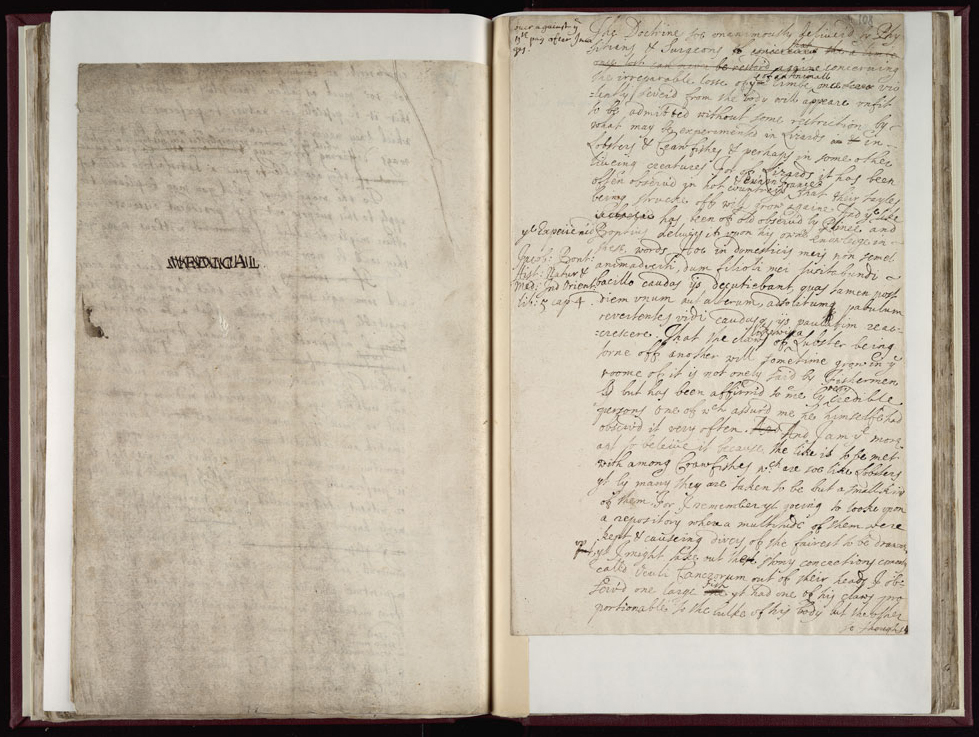 108
over against ye
pag after
The Doctrine soe unanimously deliverd by Phy
sitians & Surgeons
be restord againe concerning
the irreparable losse of ye Limbs vio
lently sever'd from the body will appeare unfit
to be admitted without some restriction, by
what may by experiments in Lizards in
Lobsters & Craw fishes & perhaps in some other
liveing creatures. For of Lizards it has been
often observd in hot countreys that their tayles
being struck off will grow againe. And ye like
has been of old observd by Pliny, and
Bontius delivers it upon his owne knowledge in
these words. Hoc in domesticis meis non semel
animadverti, dum filioli mei lusitabundi
bacillo caudas ijs decutiebant, quas tamen post
diem unum aut alterum, ad solitum pabulum
revertentes vidi caudasq ijs paulatim reac
crescere. That the claw of Lobster being
torne off another will sometime grow in ye
roome of it is not onely said by Fishermen
but has been affirm'd to me by very credible
persons one of wch assurd me he himselfe had
observd it very often. And I am ye more
apt to beleive it because the like is to be met
with among Craw fishes wch are soe like Lobsters
yt by many they are taken to be but a small kind
of them. For I remember yt goeing to looke upon
a repository where a multitude of them were
kept & causeing divers of the fairest to be drawne
up yt I might take out the stony concretions comonly
called Oculi Cancrorum out of their heads I ob
serv'd one large Fish yt had one of his claws pro
portionable to the bulke of his body but the other
so
ye Experience
Jacob: Bont:
Hist: Natur &
Med: Ind Orient
lib: 5 cap 4